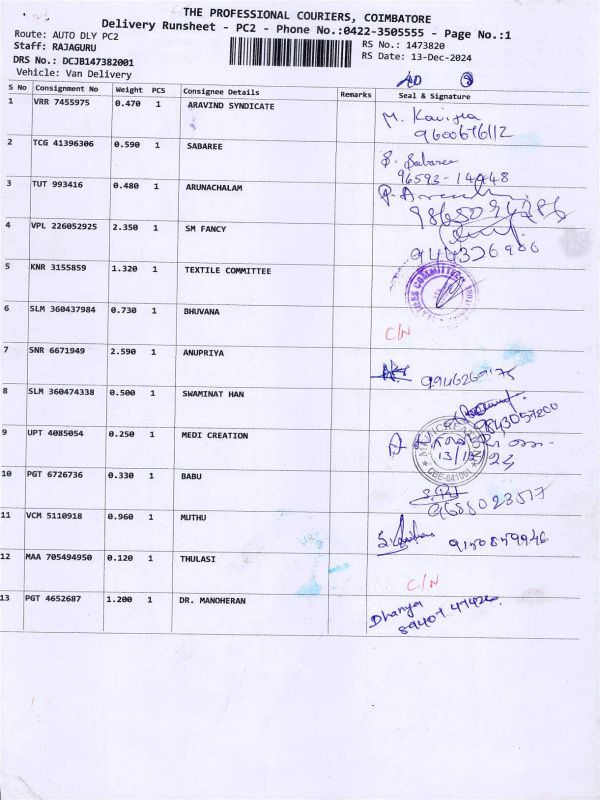 THE PROFESSIONAL COURIERS, COIMBATORE
Delivery Runsheet - PC2 - Phone No.:0422-3505555 - Page No.:1
Route: AUTO DLY PC2
Staff: RAJAGURU
DRS No.: DCJB147382001
Vehicle: Van Delivery
RS No.: 1473820
RS Date: 13-Dec-2024
S No Consignment No Weight PCS Consignee Details Remarks Seal & Signature
1 VRR 7455975 0.470 1 ARAVIND SYNDICATE
M. Kaviya
9600676112
2 TCG 41396306 0.590 1 SABAREE
S. Sabaree
96593-14448
3 TUT 993416 0.480 1 ARUNACHALAM
4 VPL 226052925 2.350 1 SM FANCY
944326900
5 KNR 3155859 1.320 1 TEXTILE COMMITTEE
TEXTILES COMMITTEE
6 SLM 360437984 0.730 1 BHUVANA
C/N
7 SNR 6671949 2.590 1 ANUPRIYA
8 SLM 360474338 0.500 1 SWAMINAT HAN
9843057200
9 UPT 4085054 0.250 1 MEDI CREATION
CBE-641001
10 PGT 6726736 0.330 1 BABU
9688023517
11 VCM 5110918 0.960 1 MUTHU
9150859946
12 MAA 705494950 0.120 1 THULASI
C/N
13 PGT 4652687 1.200 1 DR. MANOHERAN
Dhanya